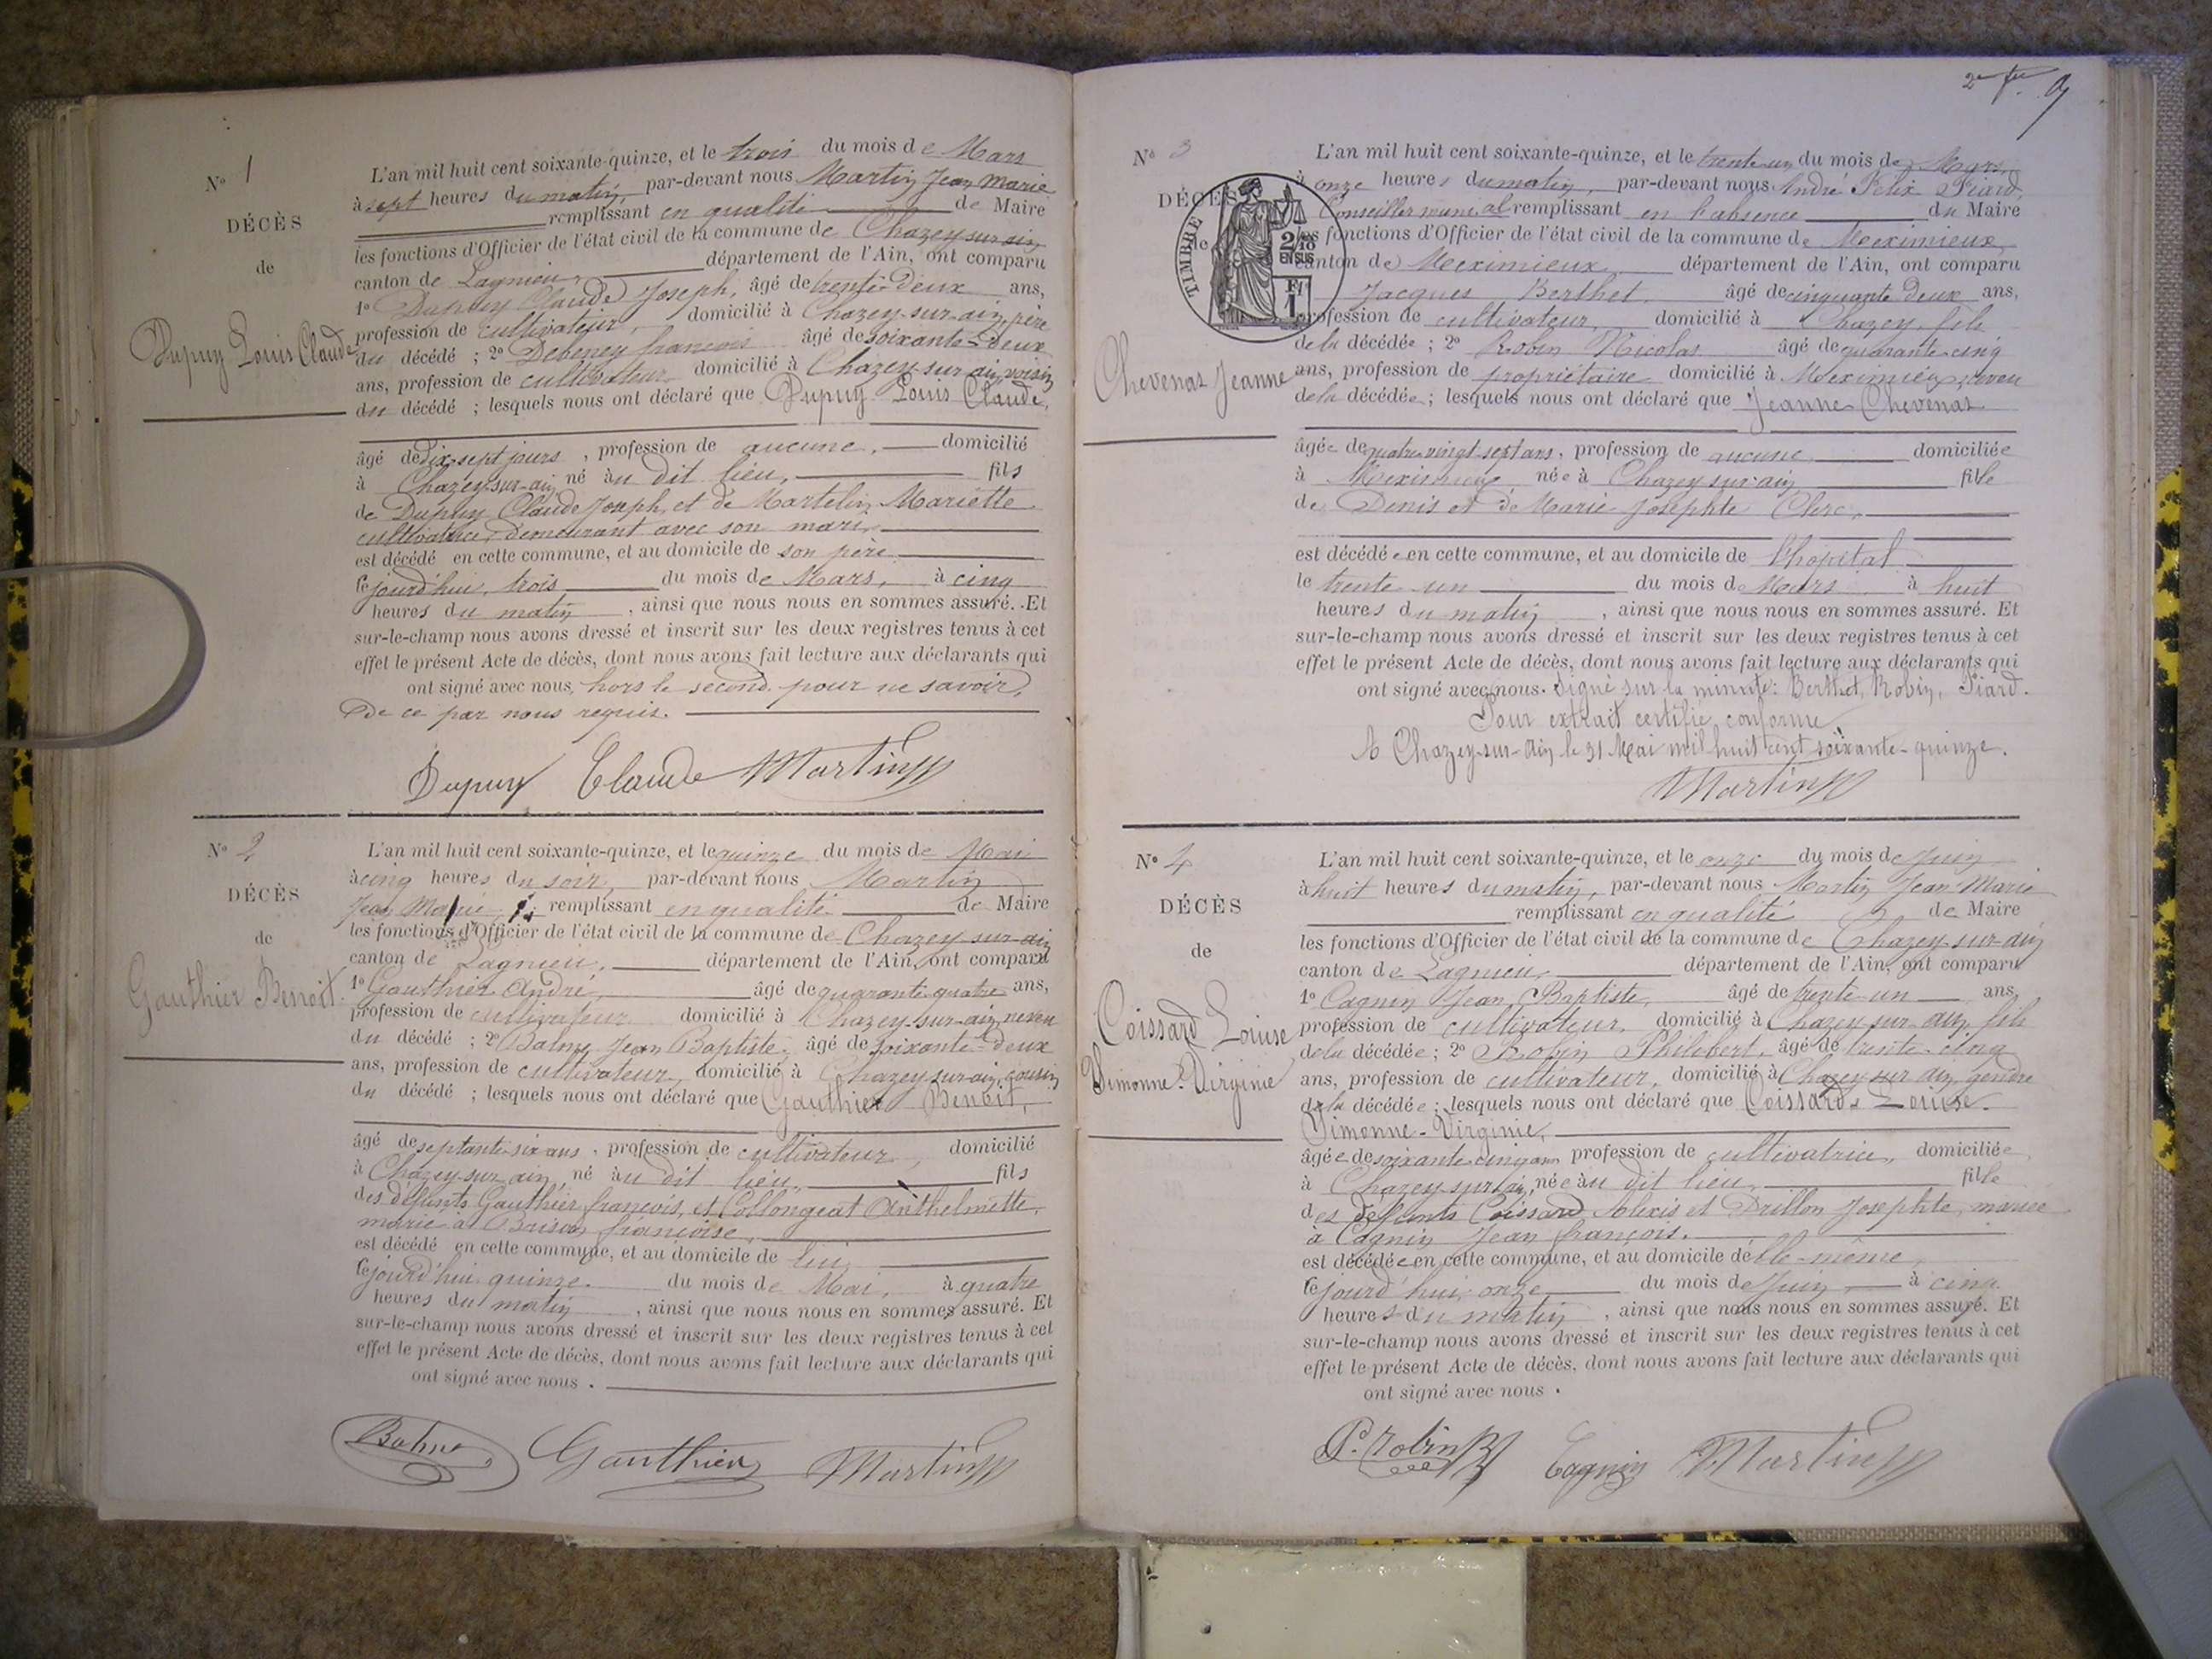 N° 1
DÉCÈS
de
Dupuy Louis Claude
L'an mil huit cent soixante-quinze, et le trois du mois de Mars
à sept heures du matin, par-devant nous Martin Jean Marie
remplissant en qualité de Maire
les fonctions d'Officier de l'état civil de la commune de Chazey-sur-ain
canton de Lagnieu département de l'Ain, ont comparu
1° Dupuy Claude Joseph, âgé de trente-deux ans,
profession de cultivateur, domicilié à Chazey-sur-ain, père
du décédé ; 2° Debeney françois âgé de soixante-deux
ans, profession de cultivateur domicilié à Chazey-sur-ain, voisin
du décédé ; lesquels nous ont déclaré que Dupuy Louis Claude,
âgé de dix-sept jours, profession de aucune, domicilié
à Chazey-sur-ain né au dit lieu, fils
de Dupuy Claude Joseph, et de Martelin Mariette
cultivatrice, demeurant avec son mari,
est décédé en cette commune, et au domicile de son père
le jourd'hui, trois du mois de Mars, à cinq
heures du matin, ainsi que nous nous en sommes assuré. Et
sur-le-champ nous avons dressé et inscrit sur les deux registres tenus à cet
effet le présent Acte de décès, dont nous avons fait lecture aux déclarants qui
ont signé avec nous, hors le second pour ne savoir,
de ce par nous requis.
Dupuy Claude Martin
N° 2
DÉCÈS
de
Gauthier Benoit.
L'an mil huit cent soixante-quinze, et le quinze du mois de Mai
à cinq heures du soir, par-devant nous Martin
Jean Marie, remplissant en qualité de Maire
les fonctions d'Officier de l'état civil de la commune de Chazey-sur-ain
canton de Lagnieu, département de l'Ain, ont comparu
1° Gauthier André, âgé de quarante quatre ans,
profession de cultivateur domicilié à Chazey-sur-ain, neveu
du décédé ; 2° Balme Jean Baptiste, âgé de soixante-deux
ans, profession de cultivateur, domicilié à Chazey-sur-ain, cousin
du décédé ; lesquels nous ont déclaré que Gauthier Benoit,
âgé de septante-six ans, profession de cultivateur, domicilié
à Chazey-sur-ain, né au dit lieu, fils
des défunts Gauthier françois, et Collongeat Anthelmette,
marié à françoise,
est décédé en cette commune, et au domicile de lui
le jourd'hui quinze. du mois de Mai, à quatre
heures du matin, ainsi que nous nous en sommes assuré. Et
sur-le-champ nous avons dressé et inscrit sur les deux registres tenus à cet
effet le présent Acte de décès, dont nous avons fait lecture aux déclarants qui
ont signé avec nous.
Balme Gauthier Martin
9
N° 3
DÉCÈS
de
TIMBRE
2/10 EN SUS
1 Fr
Chevenas Jeanne
L'an mil huit cent soixante-quinze, et le trente-un du mois de Mars
à onze heures du matin, par-devant nous André Félix Piard,
Conseiller municipal remplissant en l'absence du Maire
les fonctions d'Officier de l'état civil de la commune de Meximieux,
canton de Meximieux département de l'Ain, ont comparu
Jacques Berthet âgé de cinquante deux ans,
profession de cultivateur, domicilié à Chazey, fils
de la décédée ; 2° Robin Nicolas âgé de quarante-cinq
ans, profession de propriétaire domicilié à Meximieux, neveu
de la décédée ; lesquels nous ont déclaré que Jeanne Chevenas
âgée de quatre-vingt-sept ans, profession de aucune domiciliée
à Meximieux née à Chazey sur ain fille
de Denis et de Marie Josephte Clerc,
est décédée en cette commune, et au domicile de l'hôpital
le trente-un du mois de Mars à huit
heures du matin, ainsi que nous nous en sommes assuré. Et
sur-le-champ nous avons dressé et inscrit sur les deux registres tenus à cet
effet le présent Acte de décès, dont nous avons fait lecture aux déclarants qui
ont signé avec nous. Signé sur la minute: Berthet, Robin, Piard.
Pour extrait certifié conforme
A Chazey-sur-Ain le 31 Mai mil huit cent soixante-quinze.
Martin
N° 4
DÉCÈS
de
Coissard Louise
Simonne-Virginie
L'an mil huit cent soixante-quinze, et le onze du mois de Juin
à huit heures du matin, par-devant nous Martin Jean Marie
remplissant en qualité de Maire
les fonctions d'Officier de l'état civil de la commune de Chazey-sur-ain
canton de Lagnieu, département de l'Ain, ont comparu
1° Cagnin Jean Baptiste, âgé de trente-un ans,
profession de cultivateur, domicilié à Chazey sur ain, fils
de la décédée ; 2° Robin Philibert, âgé de trente-cinq
ans, profession de cultivateur, domicilié à Chazey sur ain, gendre
de la décédée ; lesquels nous ont déclaré que Coissard Louise
Simonne-Virginie,
âgée de soixante cinq ans profession de cultivatrice, domiciliée
à Chazey-sur-ain, née au dit lieu, fille
des défunts Coissard Alexis et Drillon Josephte, mariée
à Cagnin Jean françois.
est décédée en cette commune, et au domicile d'elle-même,
le jourd'hui onze du mois de Juin à cinq
heures du matin, ainsi que nous nous en sommes assuré. Et
sur-le-champ nous avons dressé et inscrit sur les deux registres tenus à cet
effet le présent Acte de décès, dont nous avons fait lecture aux déclarants qui
ont signé avec nous.
P. Robin Cagnin Martin